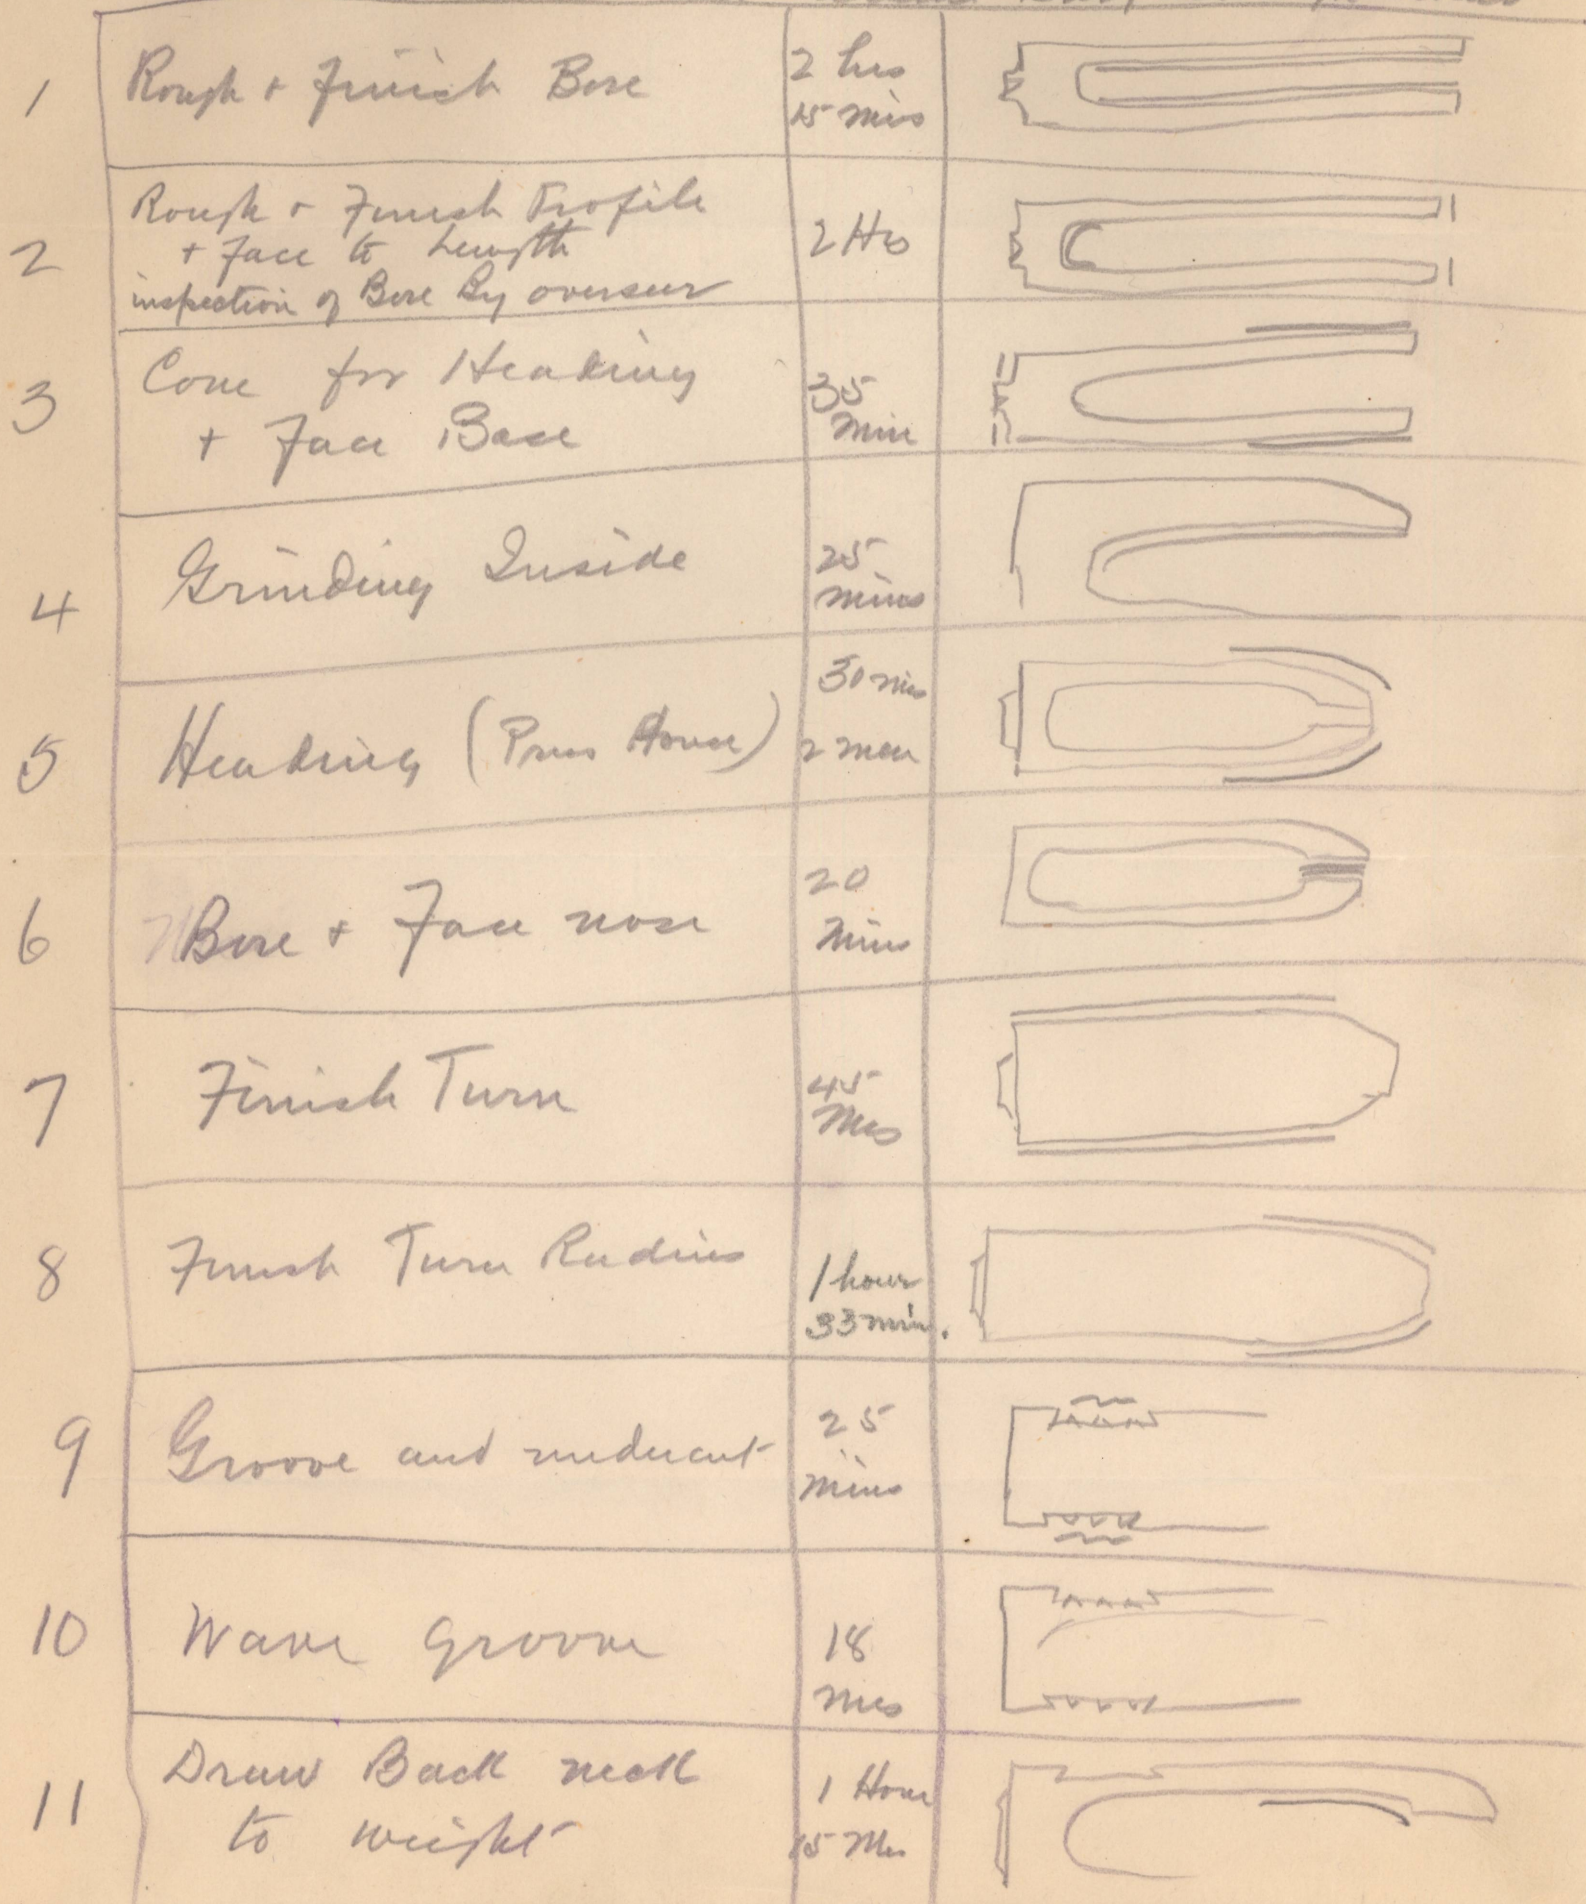 1 Rough + Finish Bore 2 hrs
15 mins
Rough + Finish Profile
2 + Face to Length 2 Hrs
inspection of Bore By overseer
3 Cone for Heading 35
+ Face Base Min
4 Grinding Inside 25
mins
30 mins
5 Heading (Press House) 2 men
20
6 Bore + Face nose Mins
7 Finish Turn 45
Mns
8 Finish Turn Radius 1 hour
33 min.
9 Groove and undercut 25
mins
10 Wave groove 18
mns
11 Draw Back neck 1 Hour
to weight 15 Mns